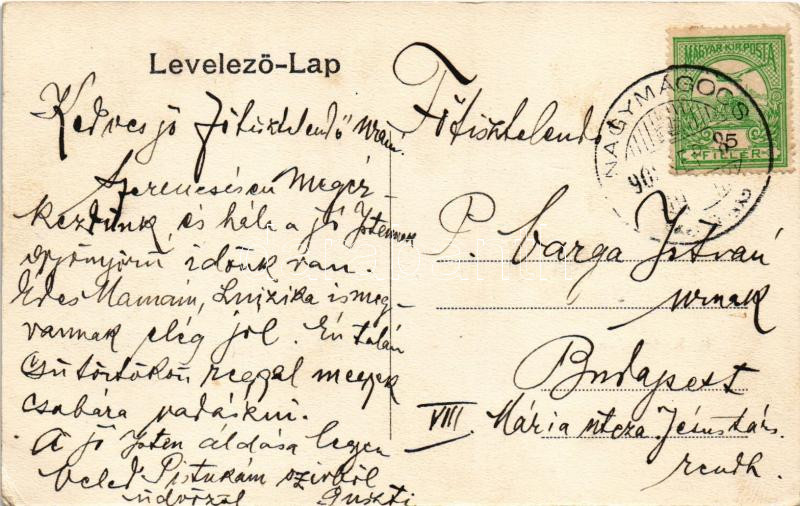 Levelező-Lap
Kedves jó Főtisztelendő uram!
Szerencsésen megér-
keztünk, és hála a jó Istennek
gyönyörű időnk van.
Édes Mamám, Luizika is meg-
vannak elég jól. Én talán
csütörtökön reggel megyek
csabára vadászni.
A jó Isten áldása legyen
veled Pistukám szivből
üdvözöl Guszti
Főtisztelendő
P. Varga István
urnak
Budapest
VIII. Mária utcza Jézustárs.
rendh.
MAGYAR KIR. POSTA
5
FILLÉR
NAGYMÁGOCS